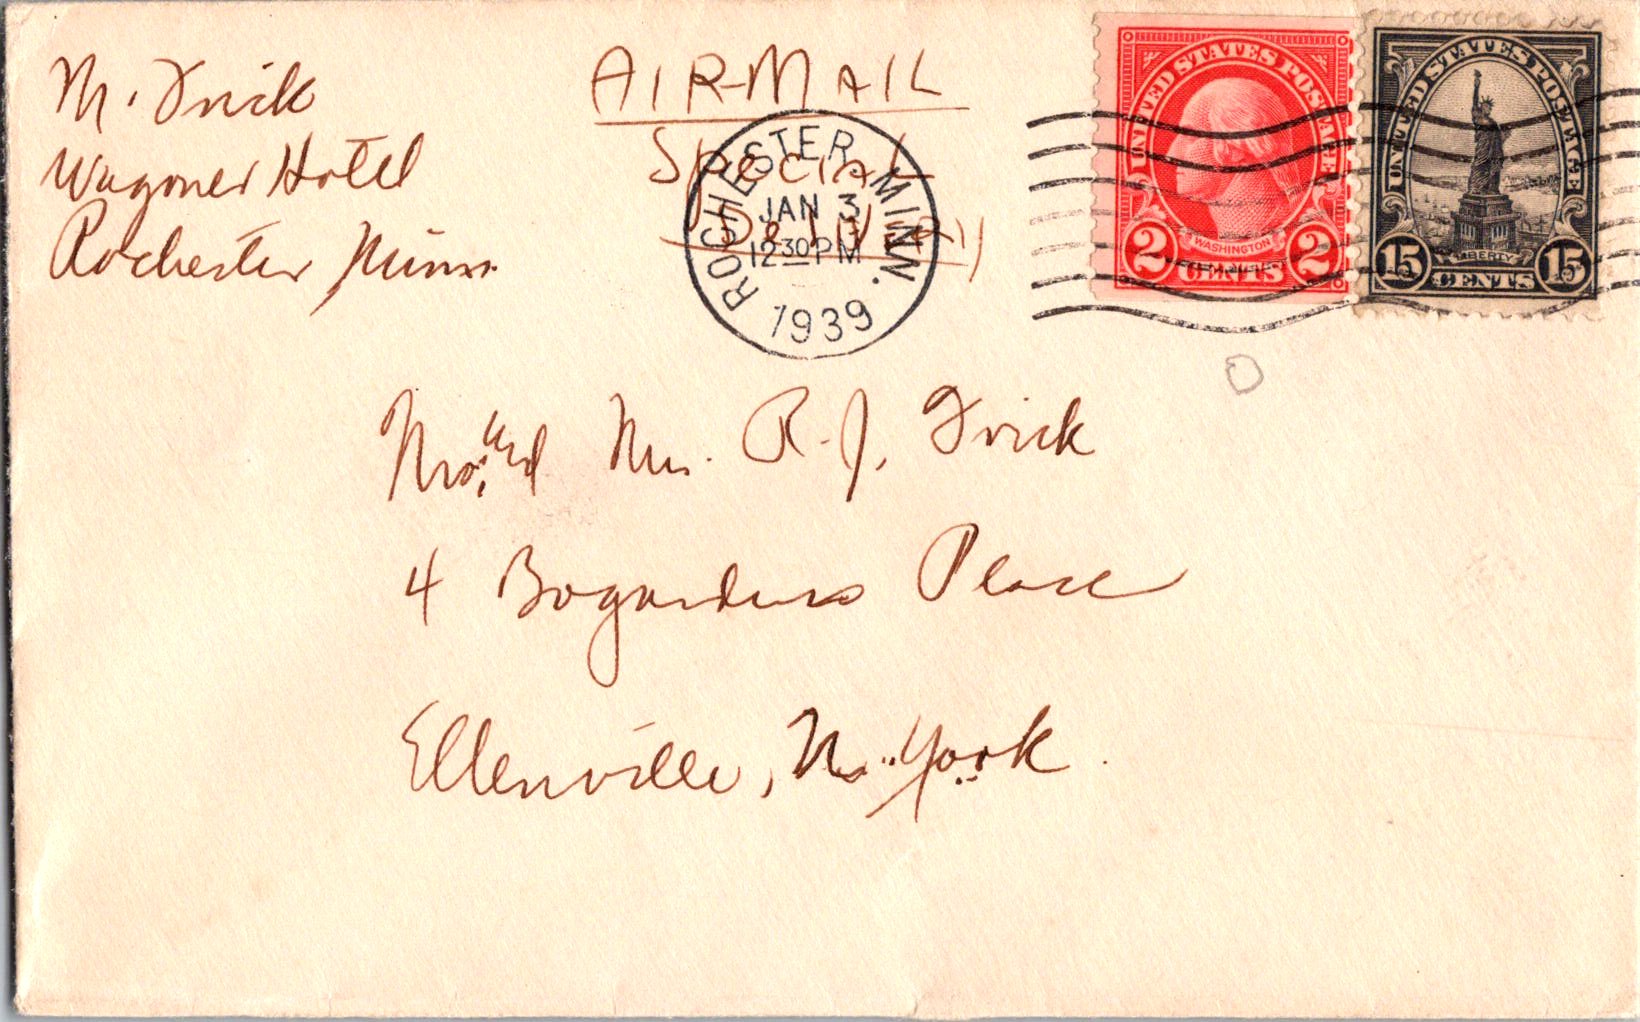 M. Frick
Wagoner Hotel
Rochester Minn.
AIR-MAIL
Special
Delivery
ROCHESTER, MINN.
JAN 3
12 30 PM
1939
UNITED STATES POSTAGE
WASHINGTON
2 CENTS 2
UNITED STATES POSTAGE
LIBERTY
15 CENTS 15
Mr. and Mrs. R. J. Frick
4 Bogardus Place
Ellenville, N. York.